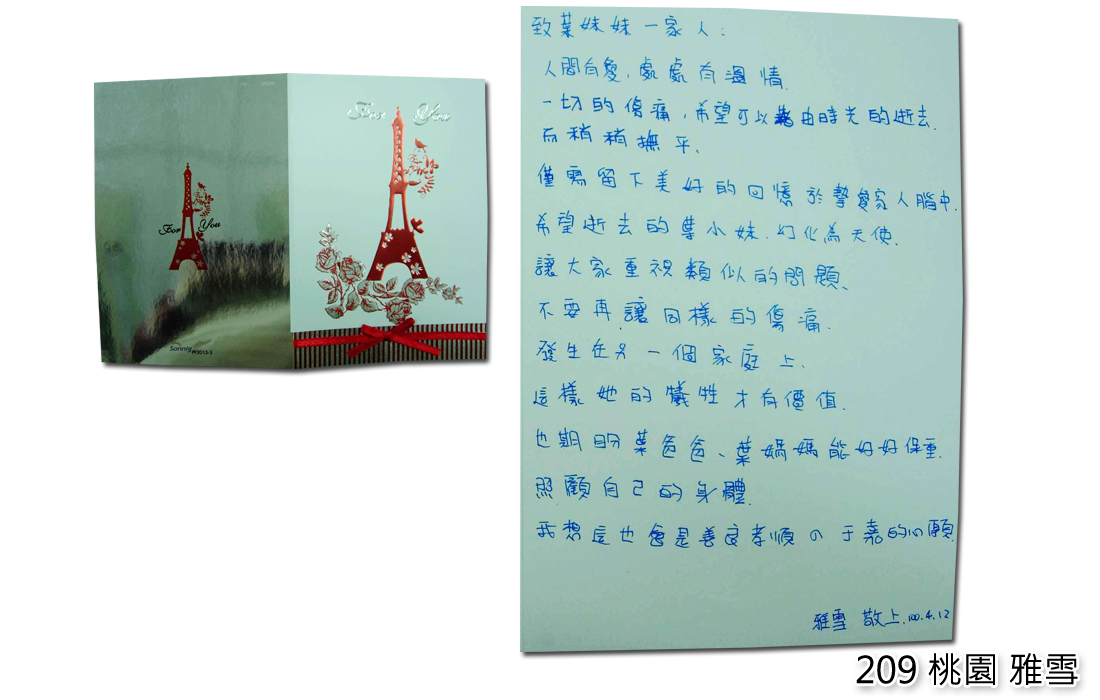 For You
For You
Sonnig W2013-2
致葉妹妹一家人：
人間有愛，處處有溫情.
一切的傷痛，希望可以藉由時光的逝去.
而稍稍撫平、
僅需留下美好的回憶於摯愛家人腦中.
希望逝去的葉小妹.幻化為天使.
讓大家重視類似的問題、
不要再讓同樣的傷痛.
發生在另一個家庭上.
這樣她的犧牲才有價值.
也期盼葉爸爸、葉媽媽能好好保重.
照顧自己的身體.
我想這也會是善良孝順の于嘉的心願
雅雪 敬上.100.4.12
209 桃園 雅雪